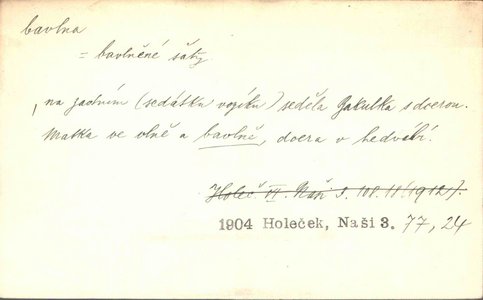 bavlna
= bavlněné šaty
, na zadním (sedátku vozíku) seděla Žakulka s dcerou.
Matka ve vlně a bavlně, dcera v hedvábí.
Holeč. VI. Naši 3. 108. 11 (1912).
1904 Holeček, Naši 3. 77, 24